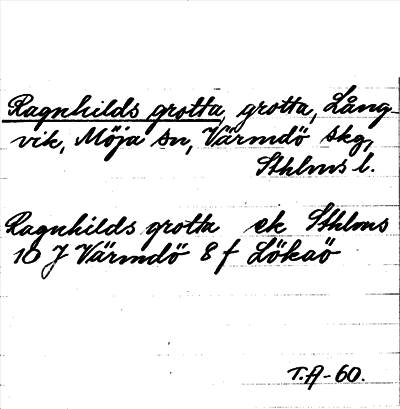 Ragnhilds grotta, grotta, Lång-
vik, Möja sn, Värmdö skg,
Sthlms l.
Ragnhilds grotta ek Sthlms
10 J Värmdö 8 f Lökaö
T.A-60.